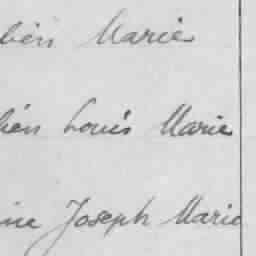 bien Marie
hien Louis Marie
ine Joseph Marie